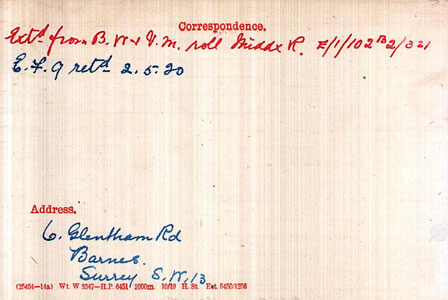 Correspondence.
Extd from B. W & V. M. roll Middx R. E/1/102 B2/321
E. F. 9 retd 2.5.20
Address.
6. Glentham Rd
Barnes.
Surrey S.W.13
(25454—14a) Wt. W 3347—H.P. 6451 2000m. 10/19 H. St. Est. 5450/1258